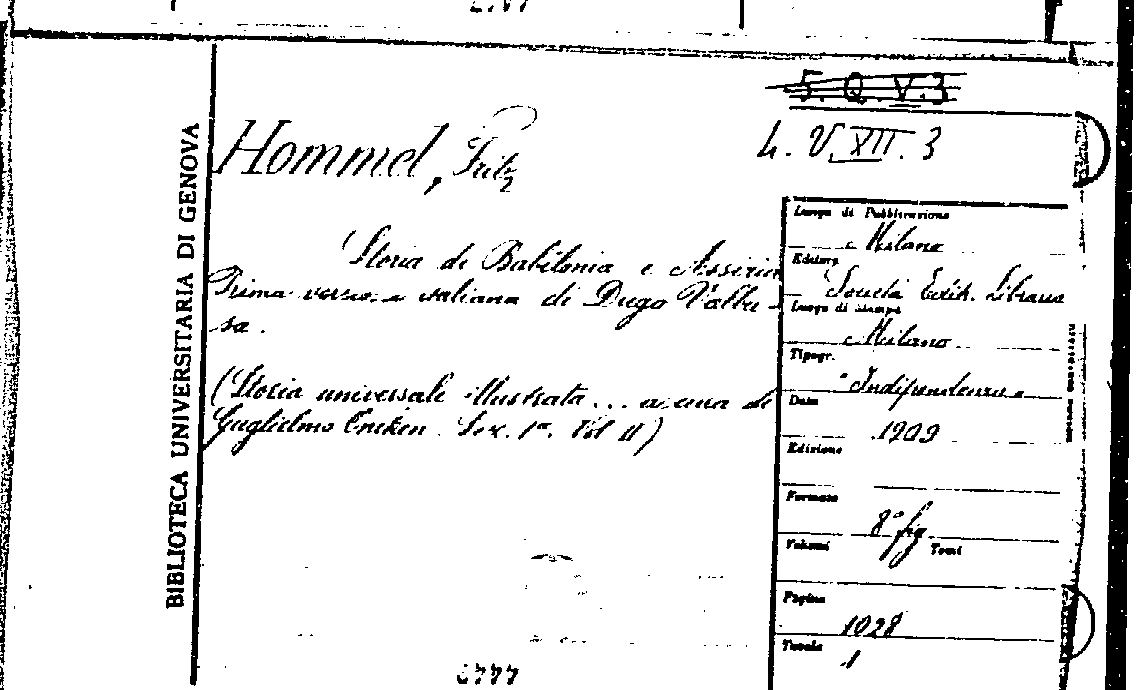 BIBLIOTECA UNIVERSITARIA DI GENOVA
5. Q. V. 3
4. V. XII. 3
Hommel, Fritz
Storia di Babilonia e Assiria
Prima versione italiana di Dugo Valbu-
sa.
(Storia universale illustrata... a cura di
Guglielmo Oncken. Sez. 1ª. Vol II)
Luogo di Pubblicazione
Milano
Editore
Società Edit. Libraria
Luogo di stampa
Milano
Tipogr.
"Indipendenza"
Data
1909
Edizione
Formato
8° fig
Volumi Tomi
Pagine
1028
Tavole
1